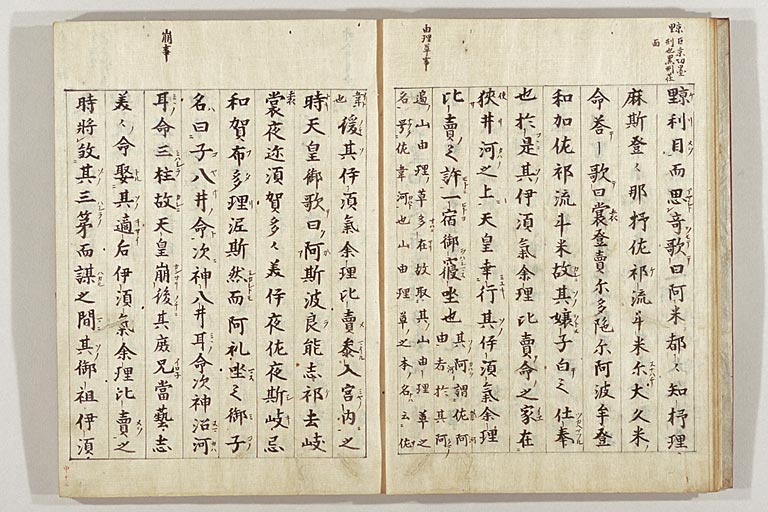 黥巨京切墨
刑也黒刑在
面
黥利目而思竒歌曰阿米都〻知杼理
麻斯登〻那杼佐祁流斗米尓大久米
命荅歌曰袁登賣尓多陁尓阿波牟登
和加佐祁流斗米故其嬢子白之仕奉
也於是其伊湏氣余理比賣命之家在
狹井河之上天皇幸行其伊湏氣余理
由理草事
比賣之許一宿御寝坐也
其阿謂佐阿
由者於其阿
邉山由理草多在故取其山由理草之
名号佐韋河也山由理草之本名云佐
韋也後其伊湏氣余理比賣叅入宮内之
時天皇御歌曰阿斯波良能志祁去岐
袁夜迩湏賀多〻美伊夜佐夜斯岐忌
和賀布多理泥斯然而阿礼坐之御子
崩事
名曰子八井命次神八井耳命次神沼河
耳命三柱故天皇崩後其庶兄當藝志
美〻命娶其適后伊湏氣余理比賣之
時將殺其三弟而謀之間其御祖伊湏